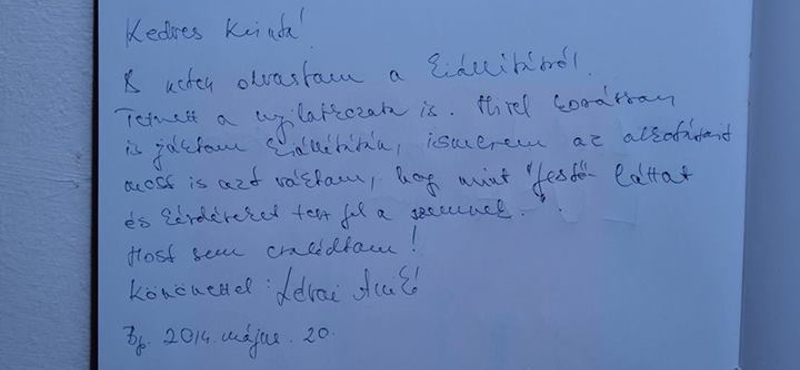 Kedves Kriszta!
A neten olvastam a kiállításról.
Tetszett a nyilatkozata is. Mivel korábban
is jártam kiállításán, ismerem az alkotásait
most is azt vártam, hogy mint "festő" láttat
és kérdéseket tesz fel a szemnek.
Most sem csalódtam!
Köszönettel:
Bp. 2014. május. 20.